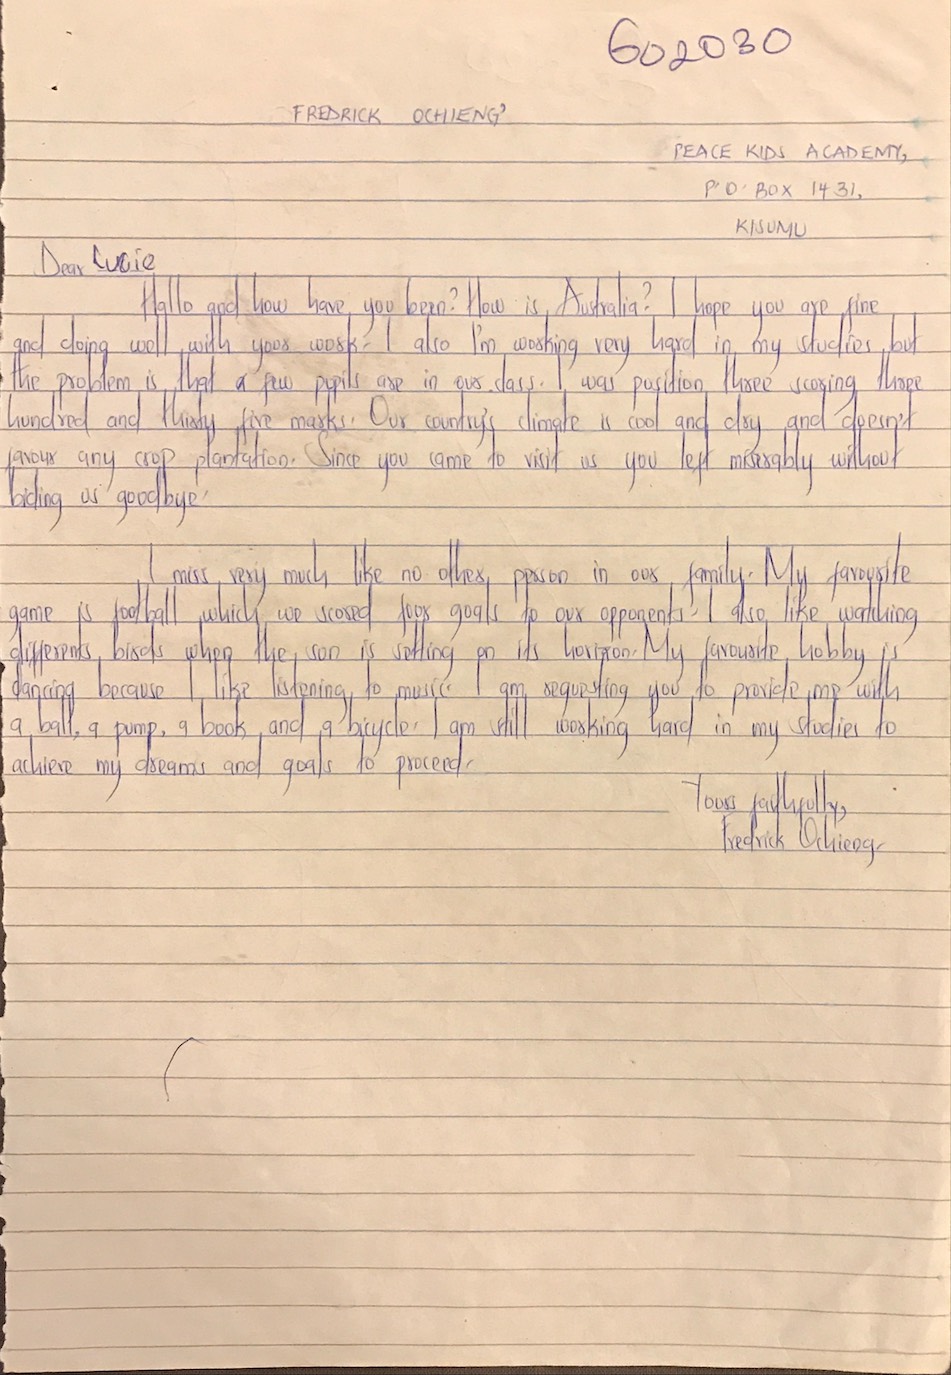 602030
FREDRICK OCHIENG'
PEACE KIDS ACADEMY,
P.O. BOX 1431,
KISUMU
Dear Lucie
Hallo and how have you been? How is Australia? I hope you are fine
and doing well with your work. I also I'm working very hard in my studies but
the problem is that a few pupils are in our class. I was position three scoring three
hundred and thirty five marks. Our country's climate is cool and dry and doesn't
favour any crop plantation. Since you came to visit us you left miserably without
biding us goodbye.
I miss very much like no other person in our family. My favourite
game is football which we scored four goals to our opponents. I also like watching
differents birds when the son is setting on its horizon. My favourite hobby is
dancing because I like listening to music. I am requesting you to provide me with
a ball, a pump, a book and a bicycle. I am still working hard in my studies to
achieve my dreams and goals to proceed.
Yours faithfully,
Fredrick Ochieng.